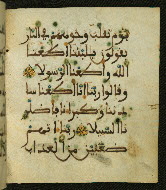 يوم تقلب وجوههم في النار
يقولون يليتنا أطعنا
الله وأطعنا الرسولا
وقالوا ربنا إنا أطعنا سا
دتنا وكبراءنا فأضلو
نا السبيلا ربنا ءاتهم
ضعفين من العذاب